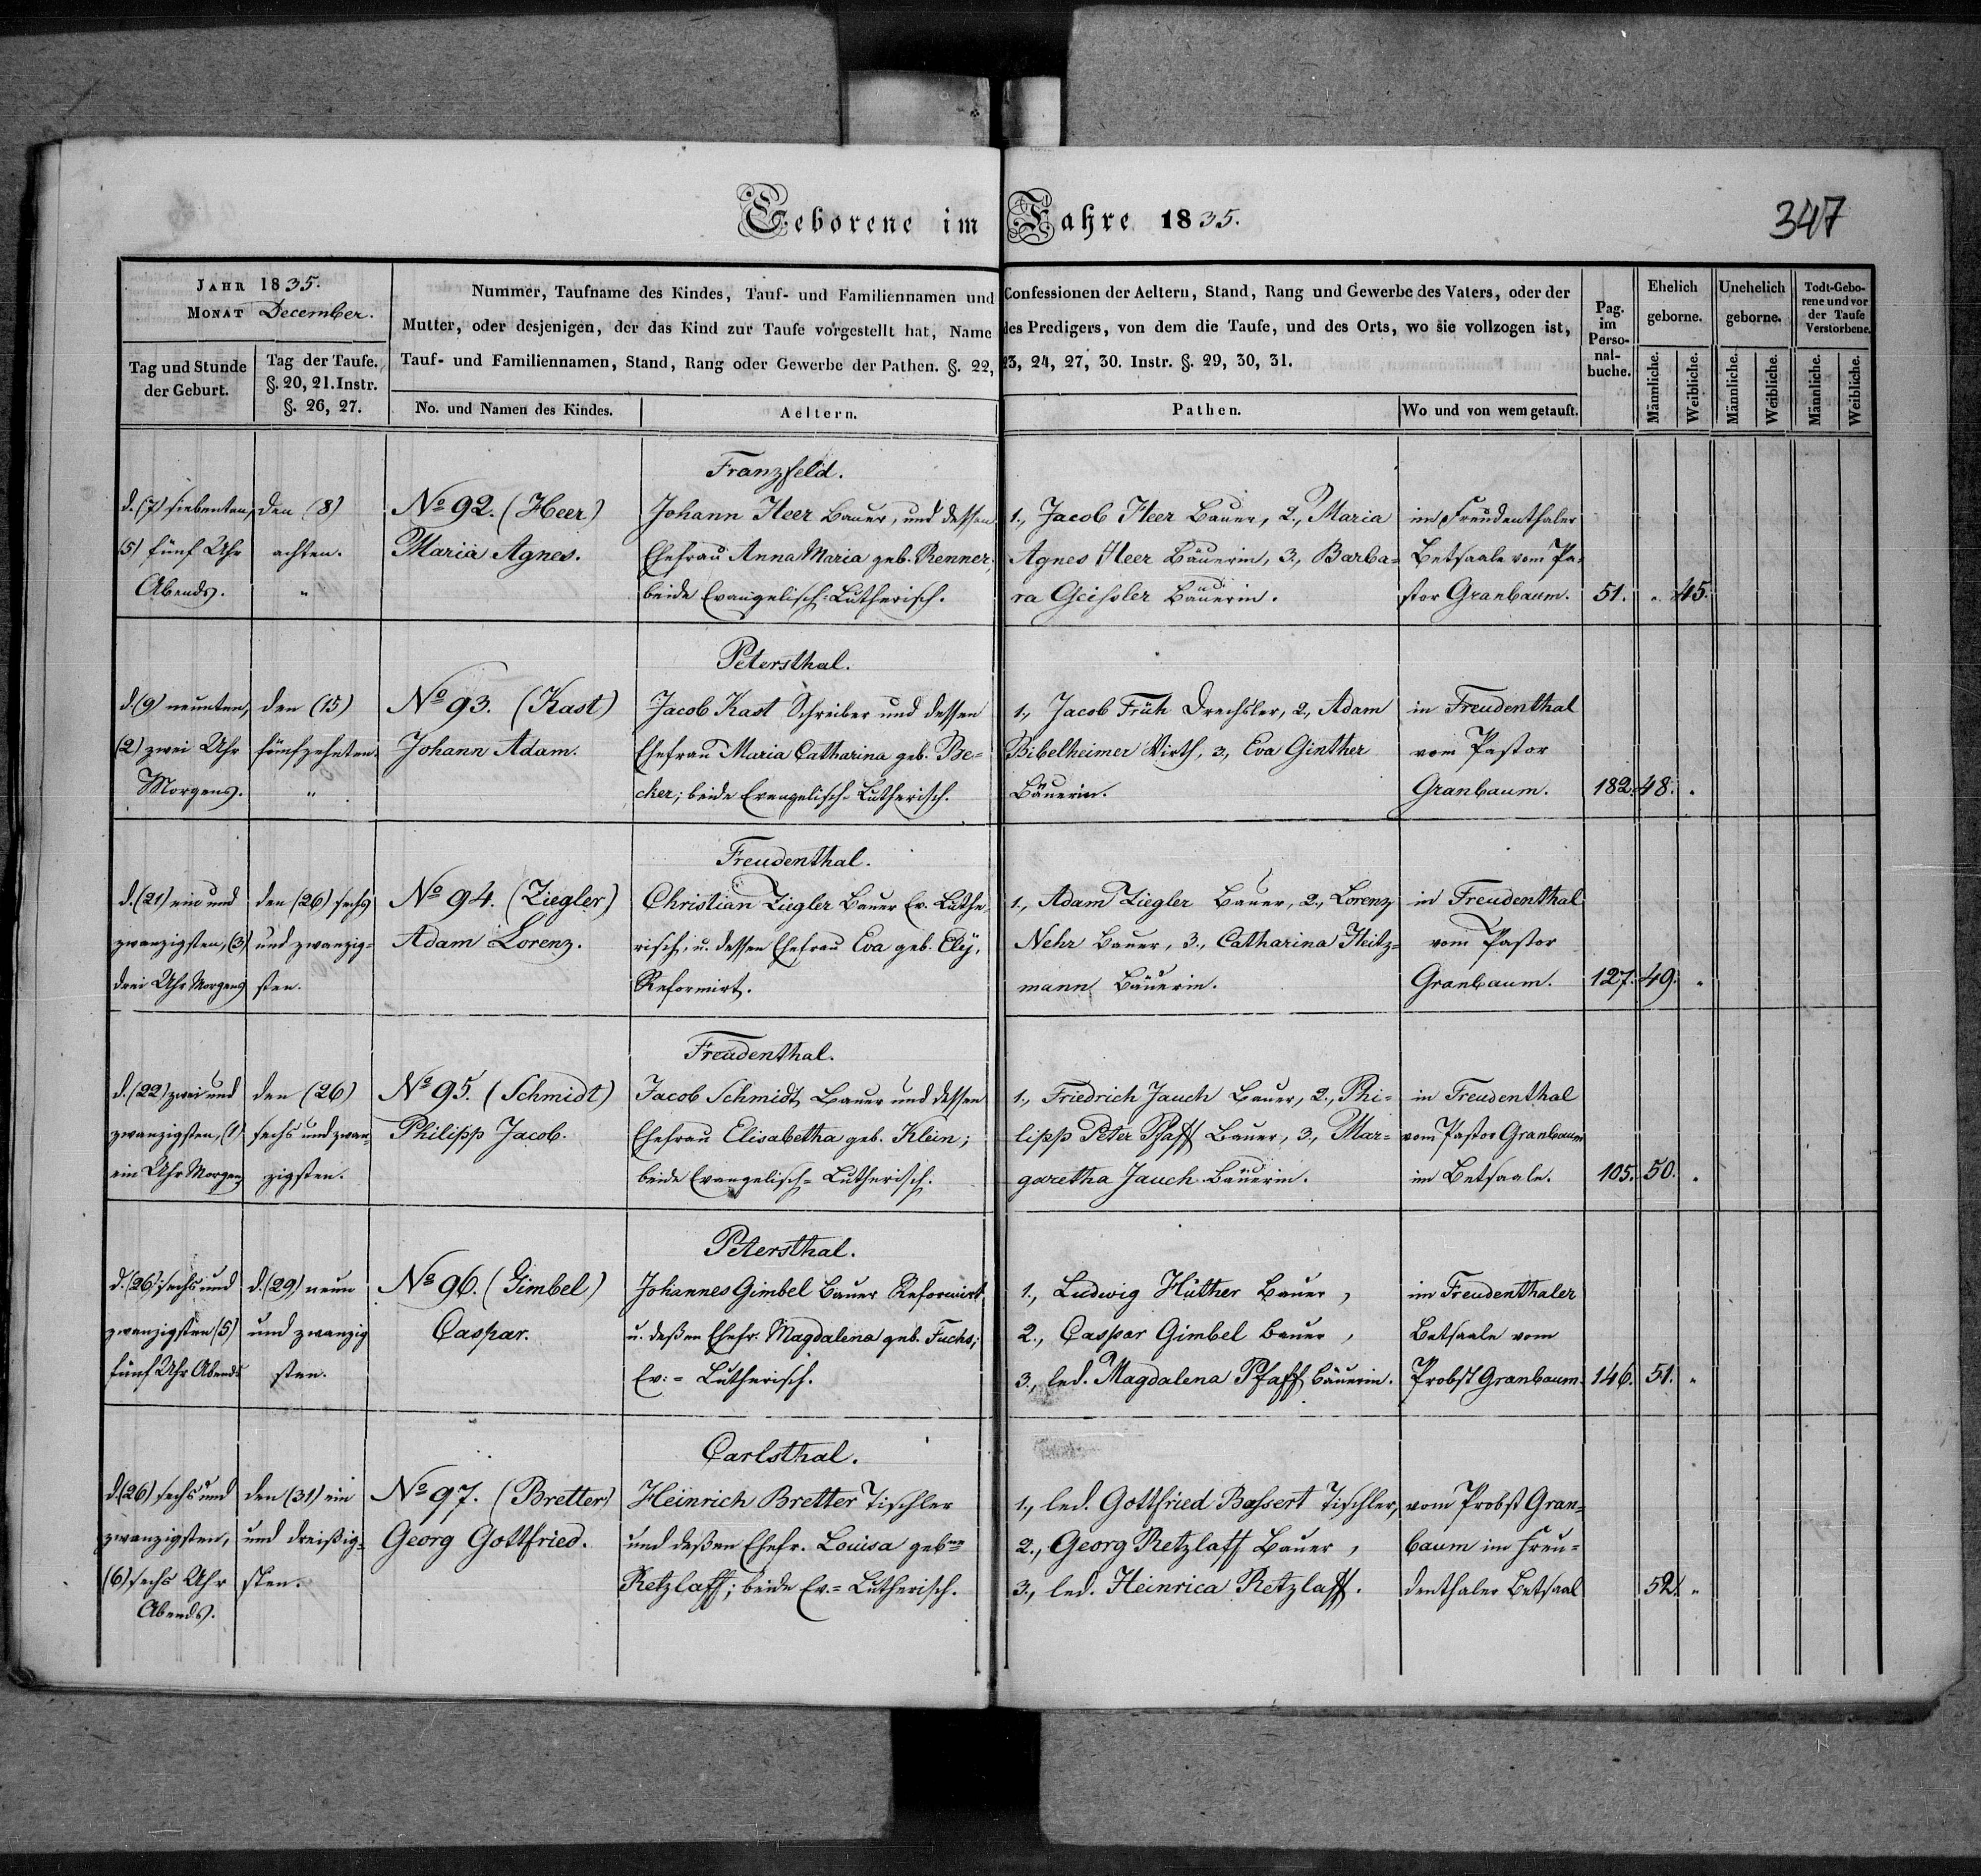 Geborene im Jahre 1835.
347
JAHR 1835.
MONAT December.
Nummer, Taufname des Kindes, Tauf- und Familiennamen und Confessionen der Aeltern, Stand, Rang und Gewerbe des Vaters, oder der
Mutter, oder desjenigen, der das Kind zur Taufe vorgestellt hat, Name des Predigers, von dem die Taufe, und des Orts, wo sie vollzogen ist,
Tauf- und Familiennamen, Stand, Rang oder Gewerbe der Pathen. §. 22, 23, 24, 27, 30. Instr. §. 29, 30, 31.
Tag und Stunde
der Geburt.
Tag der Taufe.
§. 20, 21. Instr.
§. 26, 27.
No. und Namen des Kindes.
Aeltern.
Pathen.
Wo und von wem getauft.
Pag.
im
Perso-
nal-
buche.
Ehelich
geborne.
Unehelich
geborne.
Todt-Gebo-
rene und vor
der Taufe
Verstorbene.
Männliche.
Weibliche.
Männliche.
Weibliche.
Männliche.
Weibliche.
Franzfeld.
d. (7) siebenten,
(5) fünf Uhr
Abends.
den (8)
achten.
"
No 92. (Heer)
Maria Agnes.
Johann Heer Bauer, und dessen
Ehefrau Anna Maria geb. Renner,
beide Evangelisch-Lutherisch.
1., Jacob Heer Bauer, 2., Maria
Agnes Heer Bäuerin, 3., Barba-
ra Geissler Bäuerin.
im Freudenthaler
Betsaale vom Pa-
stor Granbaum.
51.
"
45.
Petersthal.
d. (9) neunten,
(2) zwei Uhr
Morgens.
den (15)
fünfzehnten.
"
No 93. (Kast)
Johann Adam.
Jacob Kast Schreiber und dessen
Ehefrau Maria Catharina geb. Be-
cher; beide Evangelisch-Lutherisch.
1., Jacob Früh Drechsler, 2., Adam
Bibelheimer Wirth, 3., Eva Ginther
Bäuerin.
in Freudenthal
vom Pastor
Granbaum.
182.
48.
"
Freudenthal.
d. (21) ein und
zwanzigsten, (3)
drei Uhr Morgens
den (26) sechs
und zwanzig-
sten.
No 94. (Ziegler)
Adam Lorenz.
Christian Ziegler Bauer Ev. Luthe-
risch, u. dessen Ehefrau Eva geb. Elÿ,
Reformirt.
1., Adam Ziegler Bauer, 2., Lorenz
Nehr Bauer, 3., Catharina Heitz-
mann Bäuerin.
in Freudenthal
vom Pastor
Granbaum.
127.
49.
"
Freudenthal.
d. (22) zwei und
zwanzigsten, (1)
ein Uhr Morgens
den (26)
sechs und zwan-
zigsten.
No 95. (Schmidt)
Philipp Jacob.
Jacob Schmidt Bauer und dessen
Ehefrau Elisabetha geb. Klein;
beide Evangelisch-Lutherisch.
1., Friedrich Jauch Bauer, 2., Phi-
lipp Peter Pfaff Bauer, 3., Mar-
garetha Jauch Bäuerin.
in Freudenthal
vom Pastor Granbaum
im Betsaale.
105.
50.
"
Petersthal.
d. (26) sechs und
zwanzigsten (5)
fünf Uhr Abends
d. (29) neun
und zwanzig
sten.
No 96. (Gimbel)
Caspar.
Johannes Gimbel Bauer Reformirt,
u. deßen Ehefr. Magdalena geb. Fuchs;
Ev:-Lutherisch.
1., Ludwig Hüther Bauer,
2., Caspar Gimbel Bauer,
3., led. Magdalena Pfaff Bäuerin.
im Freudenthaler
Betsaale vom
Probst Granbaum.
146.
51.
"
Carlsthal.
d. (26) sechs und
zwanzigsten,
(6) sechs Uhr
Abends.
den (31) ein
und dreißig-
sten.
No 97. (Bretter)
Georg Gottfried.
Heinrich Bretter Tischler
und deßen Ehefr. Louisa gebne
Retzlaff; beide Ev.-Lutherisch.
1., led. Gottfried Bassert Tischler,
2., Georg Retzlaff Bauer,
3., led. Heinrica Retzlaff.
vom Probst Gran-
baum im Freu-
denthaler Betsaal
52.
"